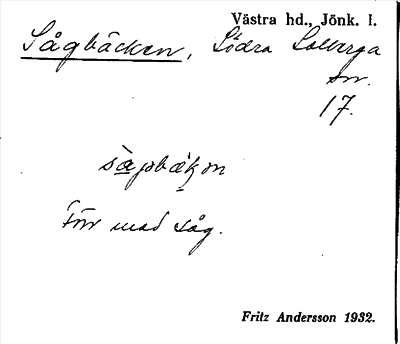 Västra hd., Jönk. l.
Sågbäcken, Södra Solberga
sn.
17.
Förr med såg.
Fritz Andersson 1932.